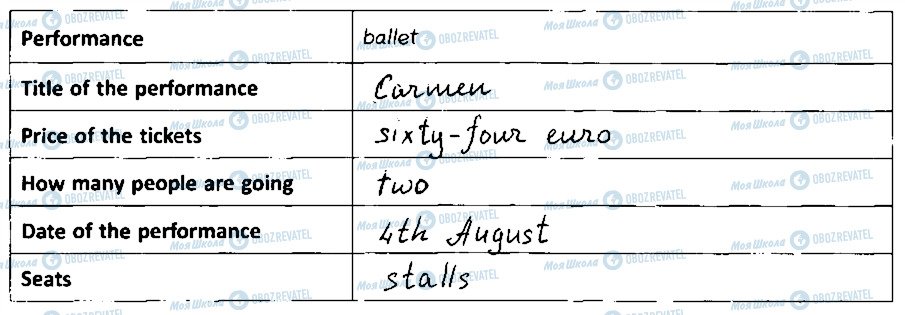 Performance ballet
Title of the performance Carmen
Price of the tickets sixty-four euro
How many people are going two
Date of the performance 4th August
Seats stalls
МояШкола OBOZREVATEL